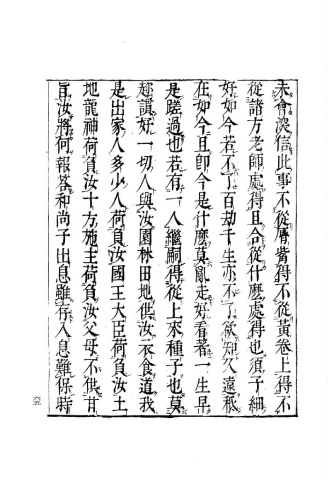 未會深信此事不從脣觜得不從黃卷上得不
從諸方老師處得且合從什麼處得也須子細
好如今若不了百劫千生亦不了欲知久遠秪
在如今且即今是什麼莫亂走好看著一生早
是蹉過也若有一人繼嗣得從上來種子也莫
趂讃好一切人與汝園林田地供汝衣食道我
是出家人多少人荷負汝國王大臣荷負汝土
地龍神荷負汝十方施主荷負汝父母不供甘
旨汝將何報答和尚子出息雖存入息難保時
六五